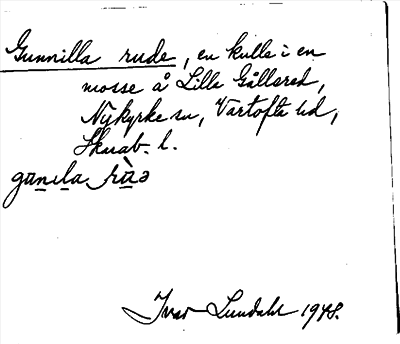 Gunnilla rude, en kulle i en
mosse å Lilla Gällared,
Nykyrke sn, Vartofta hd,
Skarab. l.
Ivar Lundahl 1948.